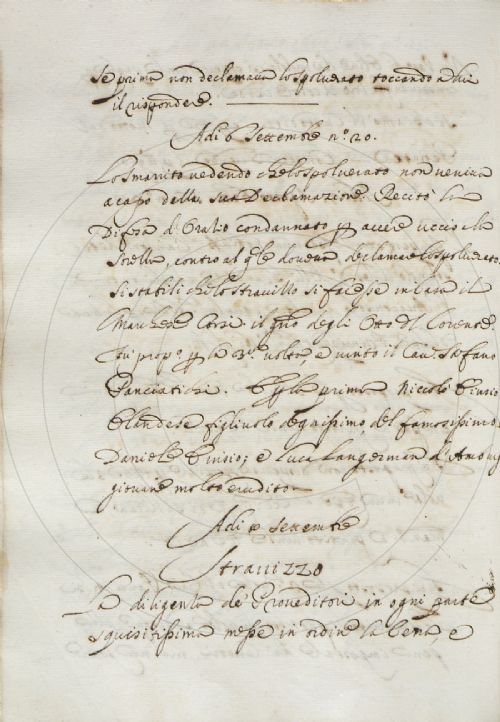 se prima non declamava lo spolverato toccando a lui
il rispondere.
Adi 6 Settembre n.º 20.
Lo smarrito vedendo che lo spolverato non veniva
a capo della sua Declamazione. Recitò la
Difesa d'Oratio condannato p avere ucciso la
sorella, contro al qle doveva declamare lo spolverato.
Si stabilì che lo stravizzo si facesse in casa il
Marchese Corsi il gno degli Otto del Corrente.
Fu propº p la 3ª volta e vinto il Cav. Stefano
Panciatichi. E p la prima Niccolò Einsio
Olandese figliuolo degnissimo del famosissimo
Daniele Einsio; e Luca Langerman d'
giovane molto erudito.
Adi Settembre
Stravizzo
La diligenza de Proveditori in ogni parte
squisitissima messe in ordine la Cena e